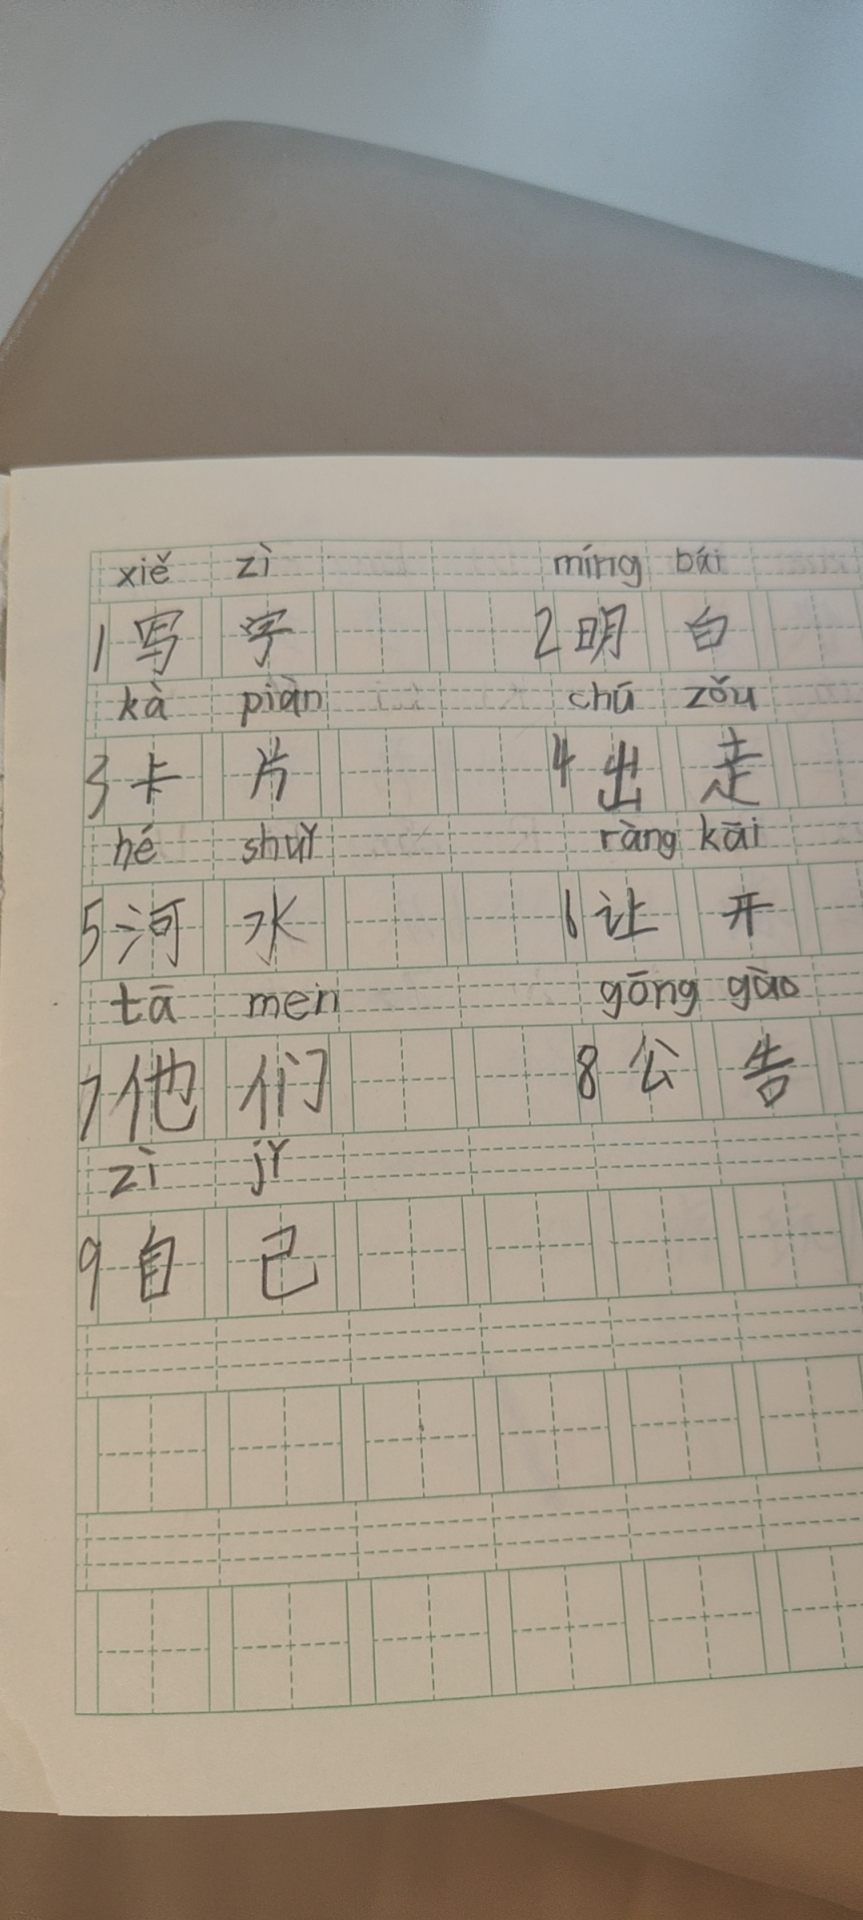 xiě zì míng bái
1 写字 2 明白
kà piàn chū zǒu
3 卡片 4 出走
hé shuǐ ràng kāi
5 河水 6 让开
tā men gōng gào
7 他们 8 公告
zì jǐ
9 自己